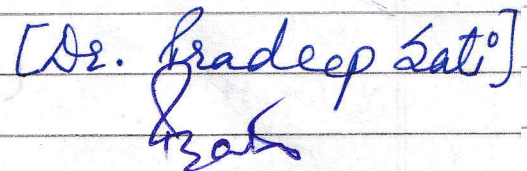 [Dr. Pradeep Sati]